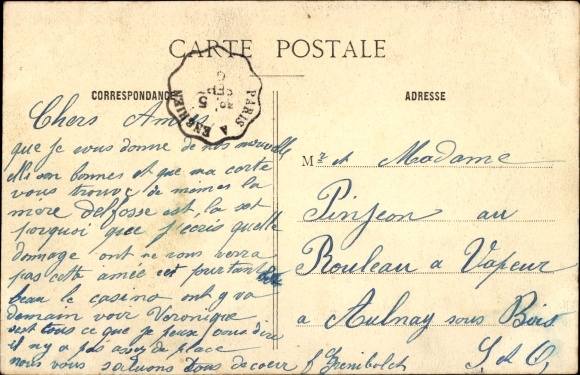 CARTE POSTALE
CORRESPONDANCE
ADRESSE
PARIS A ENGHIEN
5
SEP
Chers Amis
que je vous donne de nos nouvelle
elli son bonnes et que ma carte
vous trouve de maimes la
mère delfosse est la set
pourquoi que j'ecris quelle
domage ont ne vous verra
pas cette anneé est pourtant
beau le casino ont y va
demain voir Veronique
sest tous ce que je peux vous dire
il ny a pas assez de place
nous vous saluons tous de coeur
Mr et Madame
Pinjeon au
Rouleau a Vapeur
a Aulnay sous Bois
S et O,